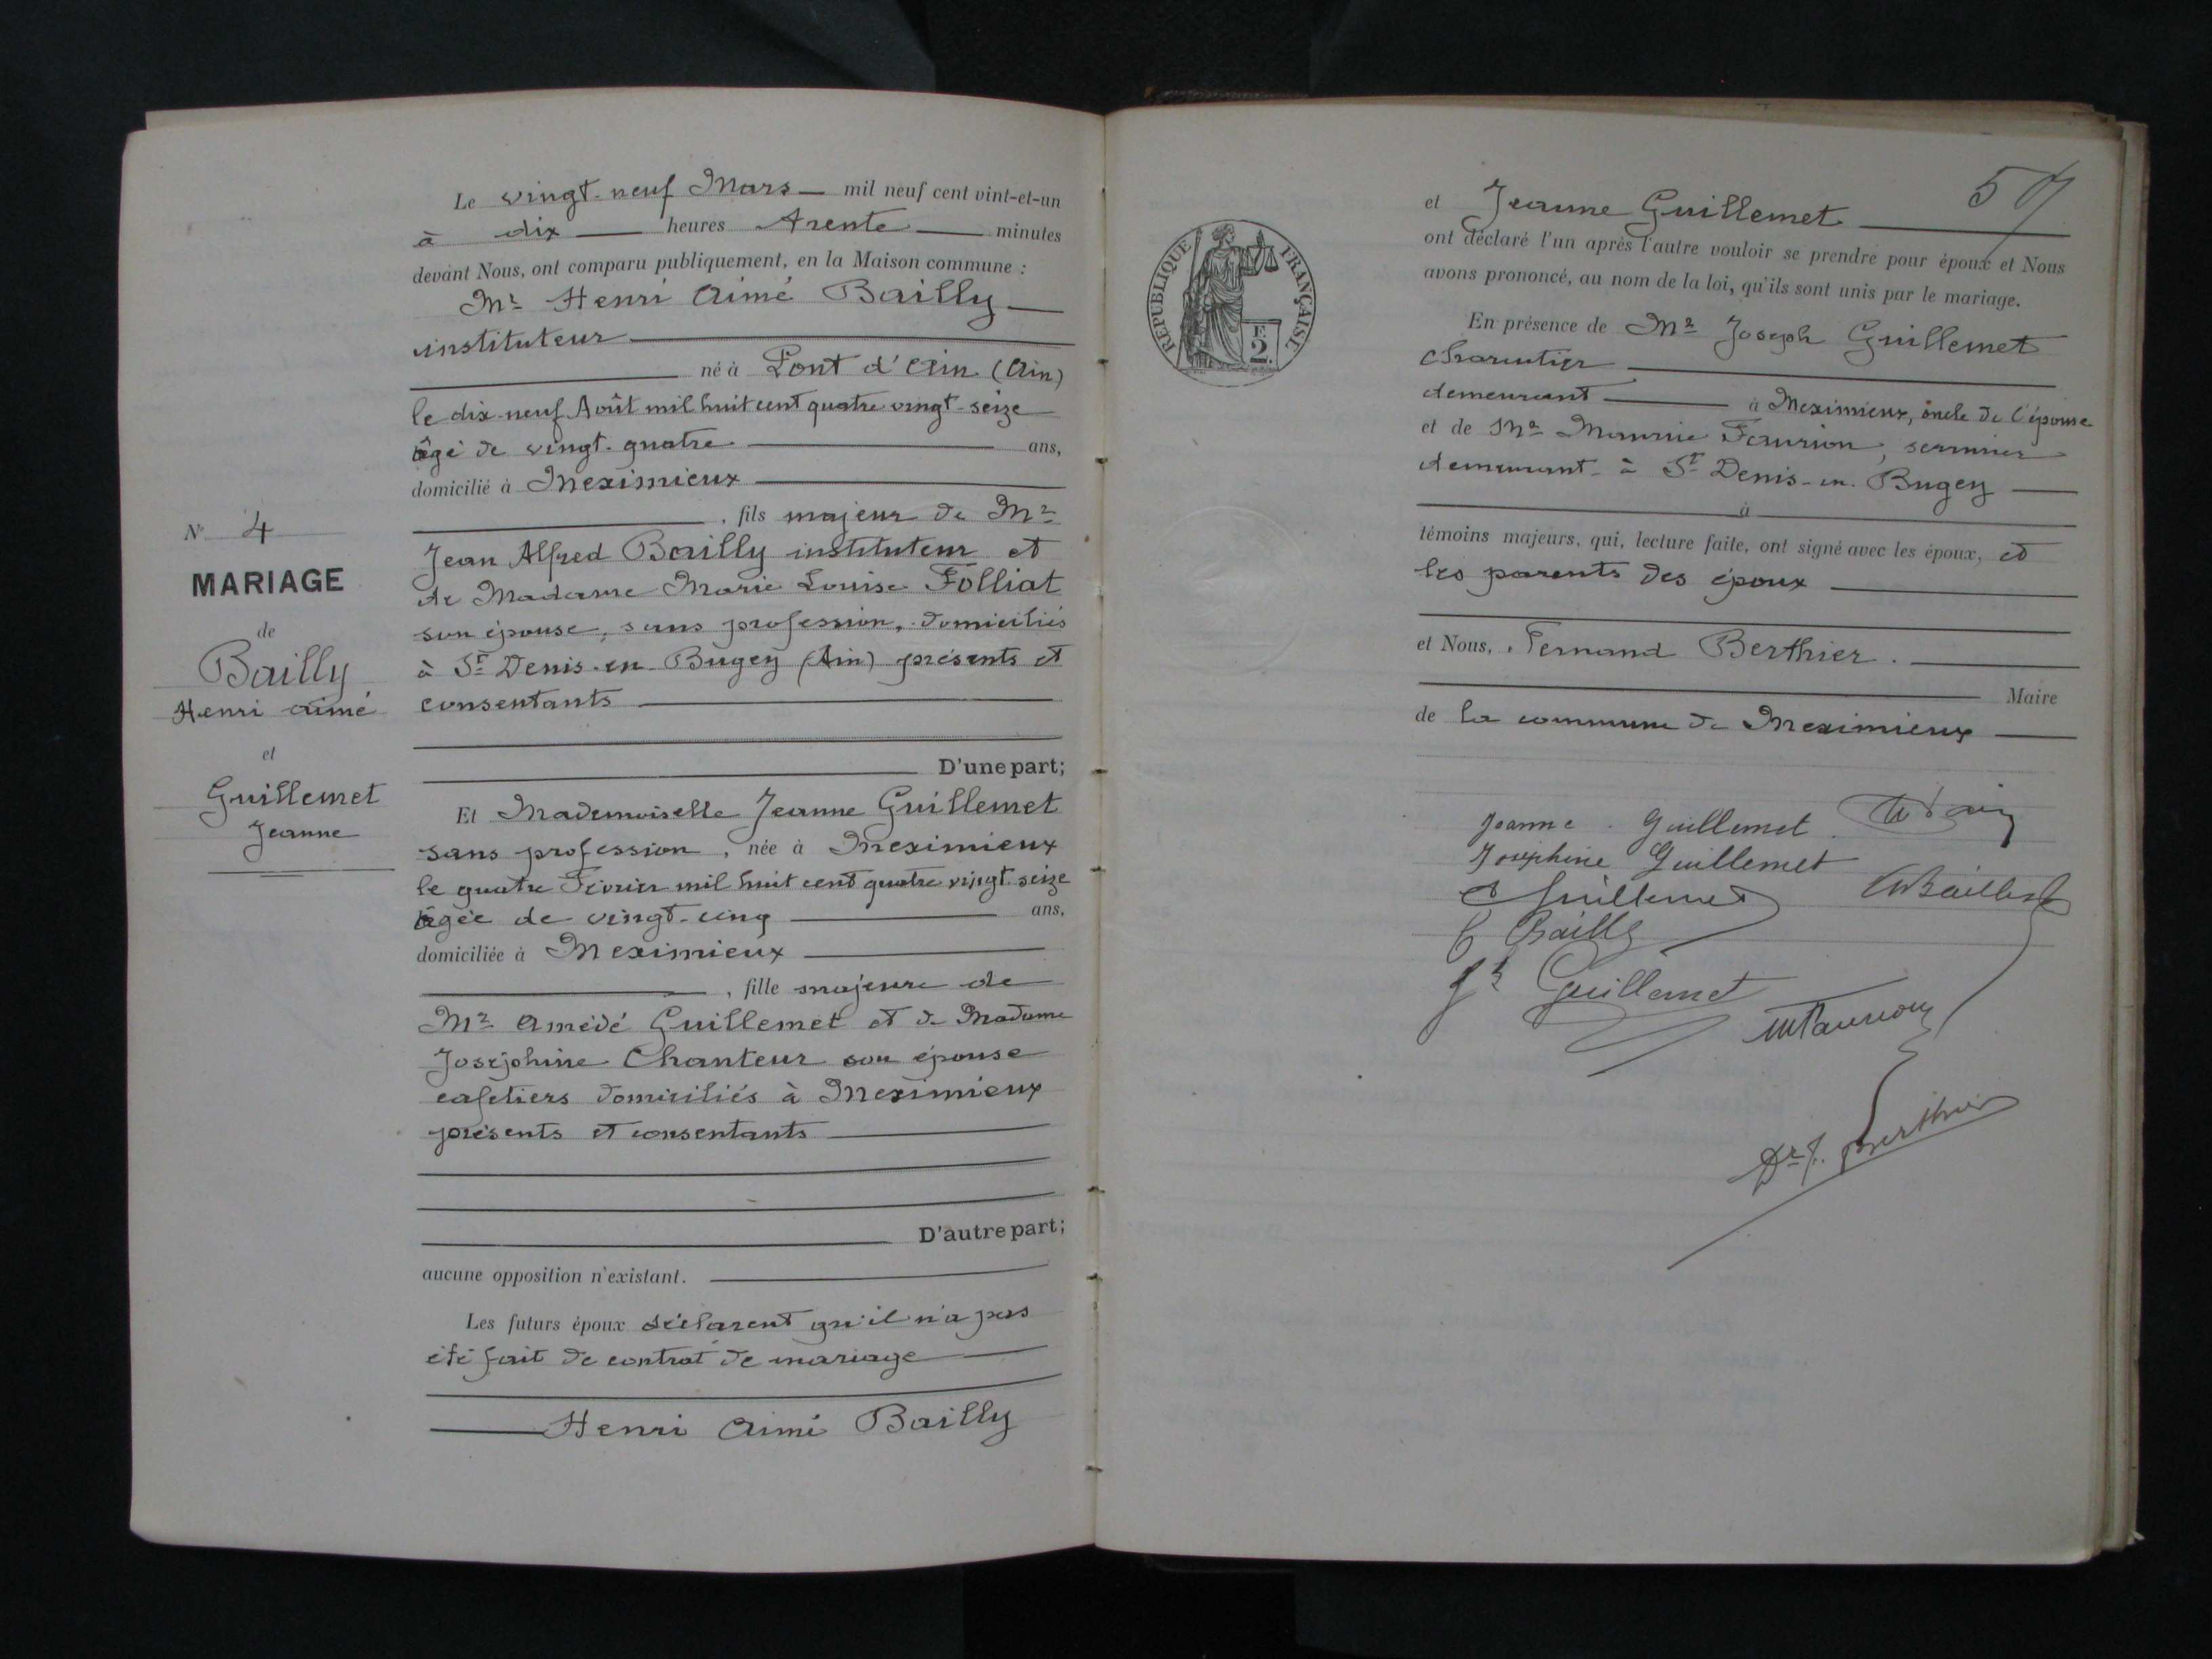 Le vingt-neuf Mars mil neuf cent vint-et-un
à dix heures trente minutes
devant Nous, ont comparu publiquement, en la Maison commune :
Mr Henri Aimé Bailly
instituteur
né à Pont d'Ain (Ain)
le dix-neuf Août mil huit cent quatre vingt-seize
âgé de vingt-quatre ans,
domicilié à Meximieux
, fils majeur de Mr
Jean Alfred Bailly instituteur et
de Madame Marie Louise Folliat
son épouse, sans profession, domiciliés
à St Denis-en-Bugey (Ain) présents et
consentants
N° 4
MARIAGE
de
Bailly
Henri Aimé
et
Guillemet
Jeanne
D'une part;
Et Mademoiselle Jeanne Guillemet
sans profession, née à Meximieux
le quatre Février mil huit cent quatre vingt-seize
âgée de vingt-cinq ans,
domiciliée à Meximieux
, fille majeure de
Mr Amédé Guillemet et de Madame
Joséphine Chanteur son épouse
cafetiers domiciliés à Meximieux
présents et consentants
D'autre part;
aucune opposition n'existant.
Les futurs époux déclarent qu'il n'a pas
été fait de contrat de mariage
Henri Aimé Bailly
57
REPUBLIQUE FRANÇAISE
E
2
et Jeanne Guillemet
ont déclaré l'un après l'autre vouloir se prendre pour époux et Nous
avons prononcé, au nom de la loi, qu'ils sont unis par le mariage.
En présence de Mr Joseph Guillemet
demeurant à Meximieux, oncle de l'épouse
et de Mr
demeurant à St Denis-en-Bugey
à
témoins majeurs, qui, lecture faite, ont signé avec les époux, et
les parents des époux
et Nous, Fernand Berthier.
Maire
de la commune de Meximieux
Jeanne Guillemet
Joséphine Guillemet
Guillemet
Bailly
Guillemet
Dr F. Berthier